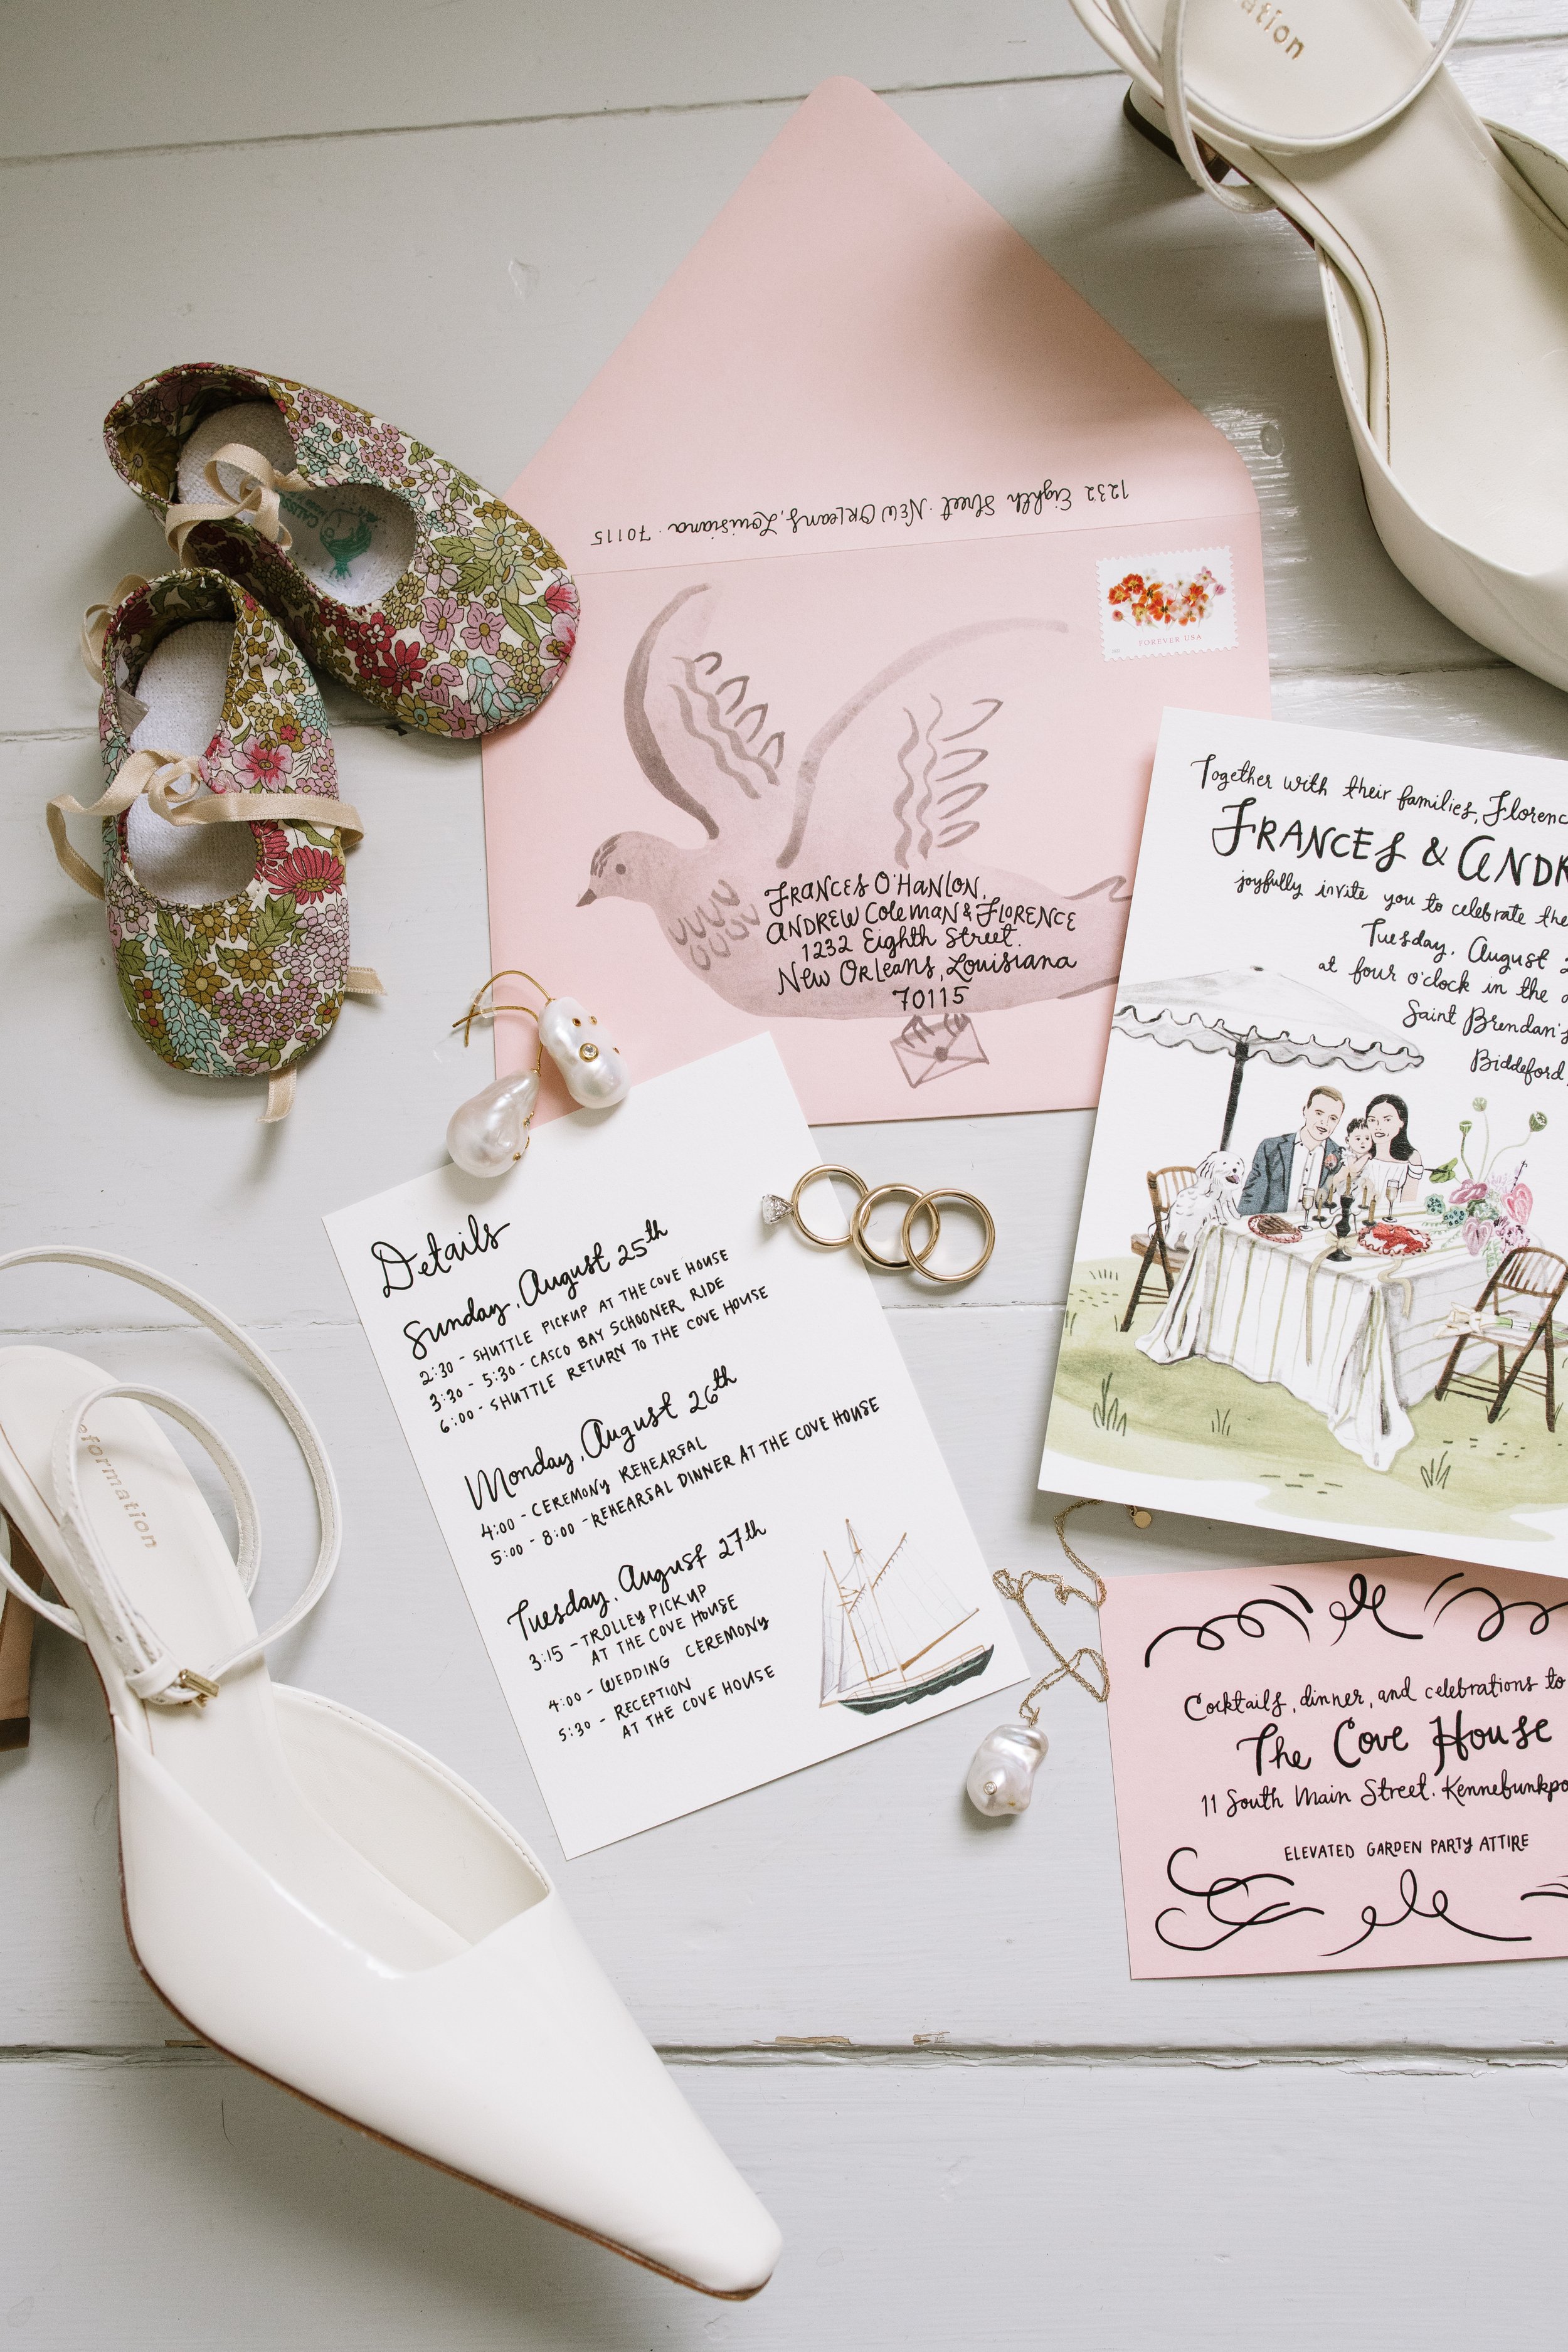 ation
1232 Eighth Street · New Orleans, Louisiana · 70115
FOREVER USA
FRANCES O'HANLON,
ANDREW COLEMAN & FLORENCE
1232 Eighth Street.
New Orleans, Louisiana
70115
Together with their families, Florenc
FRANCES & ANDR
joyfully invite you to celebrate the
Tuesday, August 2
at four o'clock in the a
Saint Brendan's
Biddeford,
Details
Sunday, August 25th
2:30 - SHUTTLE PICKUP AT THE COVE HOUSE
3:30 - 5:30 - CASCO BAY SCHOONER RIDE
6:00 - SHUTTLE RETURN TO THE COVE HOUSE
Monday, August 26th
4:00 - CEREMONY REHEARSAL
5:00 - 8:00 - REHEARSAL DINNER AT THE COVE HOUSE
Tuesday, August 27th
3:15 - TROLLEY PICKUP
AT THE COVE HOUSE
4:00 - WEDDING CEREMONY
5:30 - RECEPTION
AT THE COVE HOUSE
eformation
Cocktails, dinner, and celebrations to
The Cove House
11 South Main Street. Kennebunkpo
ELEVATED GARDEN PARTY ATTIRE